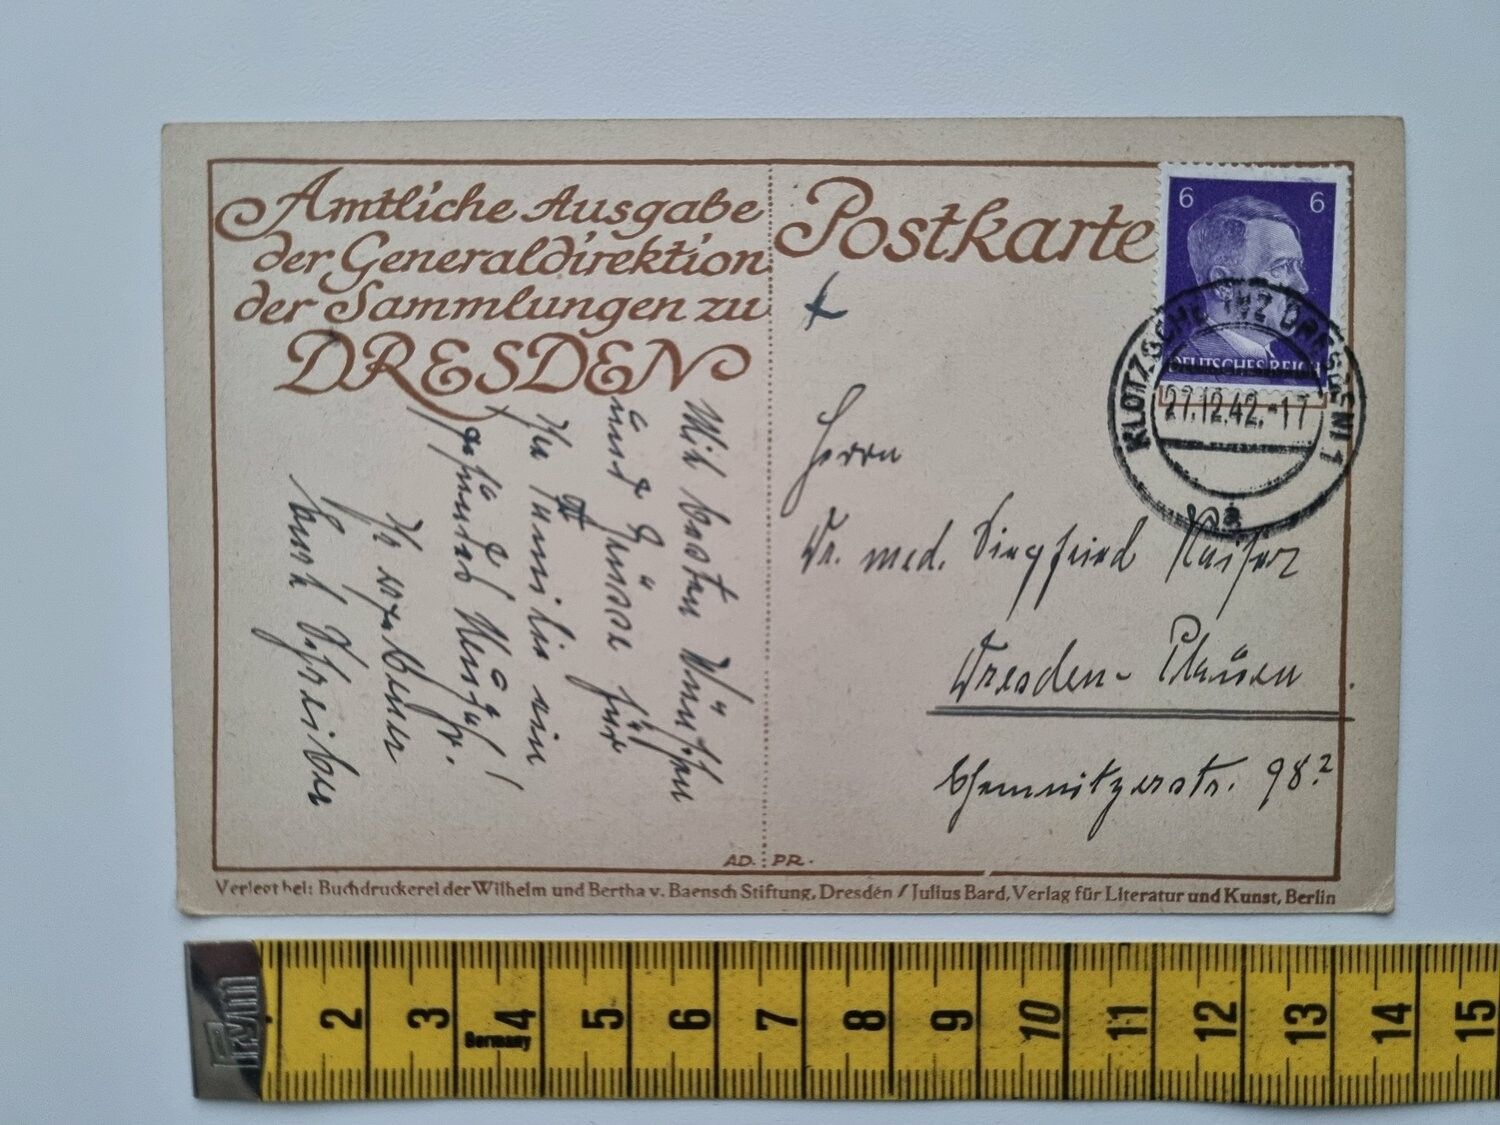 Amtliche Ausgabe
der Generaldirektion
der Sammlungen zu
DRESDEN
Mit besten Wünschen
und Grüsse für
Familie ein
gesundes Neujahr!
Ihr ergebener
Schreiber
Postkarte
6 6
DEUTSCHES REICH
KLOTZSCHE DRESDEN 1
27.12.42.-17
a
Herrn
Dr. med. Siegfried Kaiser
Dresden-Plauen
Chemnitzerstr. 98?
AD. PR.
Verlegt bei: Buchdruckerei der Wilhelm und Bertha v. Baensch Stiftung, Dresden / Julius Bard, Verlag für Literatur und Kunst, Berlin
2 3 4 5 6 7 8 9 10 11 12 13 14 15
Germany